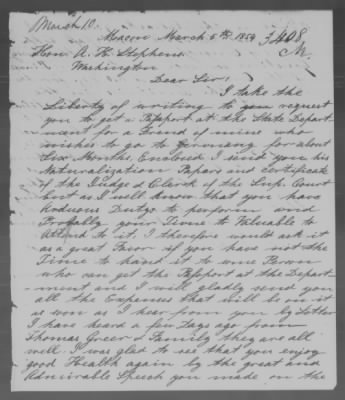 March 10.
Macon March 5th 1854 3408
Hon. A. H. Stephens M
Washington
Dear Sir!
I take the
Liberty of writing to you request
you to get a Passport at the State Depart
ment for a Friend of mine who
wishes to go to Germany for about
Six Months, Enclosed I send you his
Naturalization Papers and certificate
of the Judge & Clerk of the Sup. Court
but as I well know that you have
Arduous Dutys to perform and
Probably your Time to Valuable to
Attend to it I therefore would ask it
as a great Favor if you have not the
Time to hand it to some Person
who can get the Passport at the Depart
ment and I will gladly send you
all the Expenses that will be on it
as soon as I hear from you by Letter
I have heard a few Days ago from
Thomas Greer & Family they are all
well. I was glad to see that you enjoy
good Health again by the great and
Admirable Speech you made on the